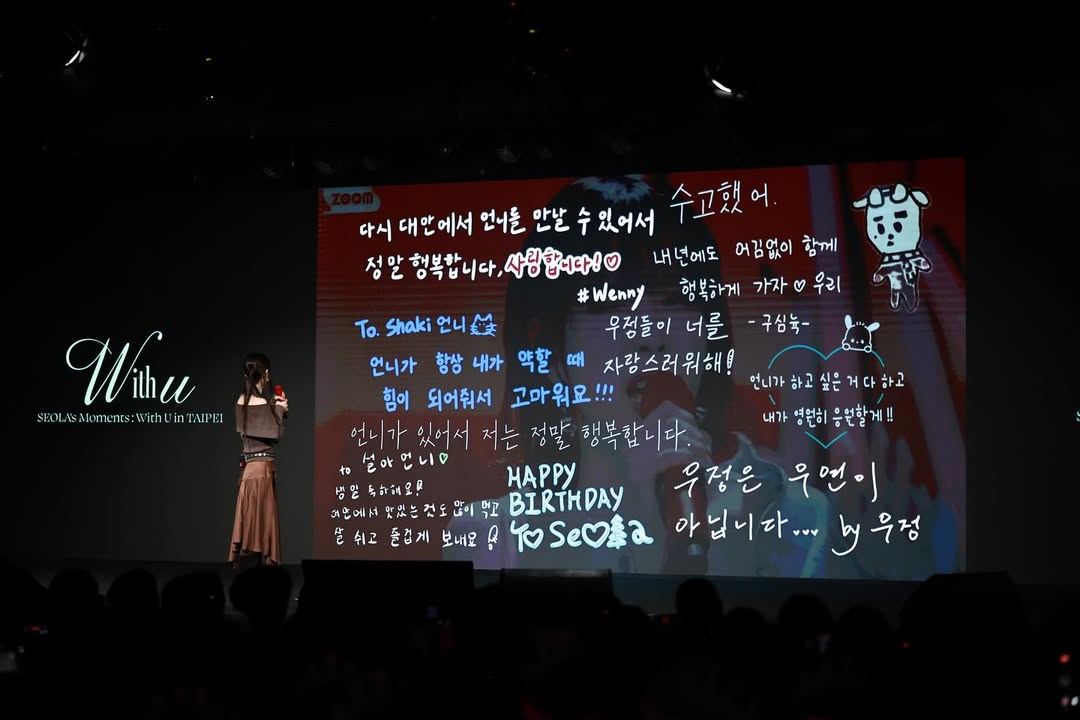 With u
SEOLA's Moments : With U in TAIPEI
ZOOM
다시 대만에서 언니들 만날 수 있어서
정말 행복합니다, 사랑합니다! ♡
#Wenny
수고했어.
내년에도 어김없이 함께
행복하게 가자 ♡ 우리
-구심눅-
To. Shaki 언니
언니가 항상 내가 약할 때
힘이 되어줘서 고마워요!!!
우정들이 너를
자랑스러워해!
언니가 하고 싶은 거 다 하고
내가 영원히 응원할게!!
언니가 있어서 저는 정말 행복합니다.
to 설아 언니 ♡
생일 축하해요!
맛있는 것도 많이 먹고
잘 쉬고 즐겁게 보내요
HAPPY
BIRTHDAY
To Seola
우정은 우연이
아닙니다... by 우정
S